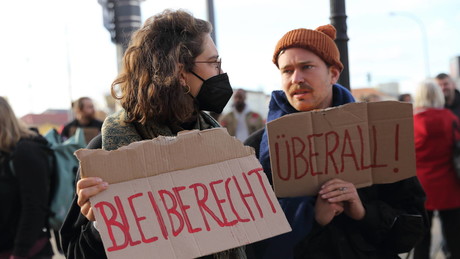 BLEIBERECHT
ÜBERALL!